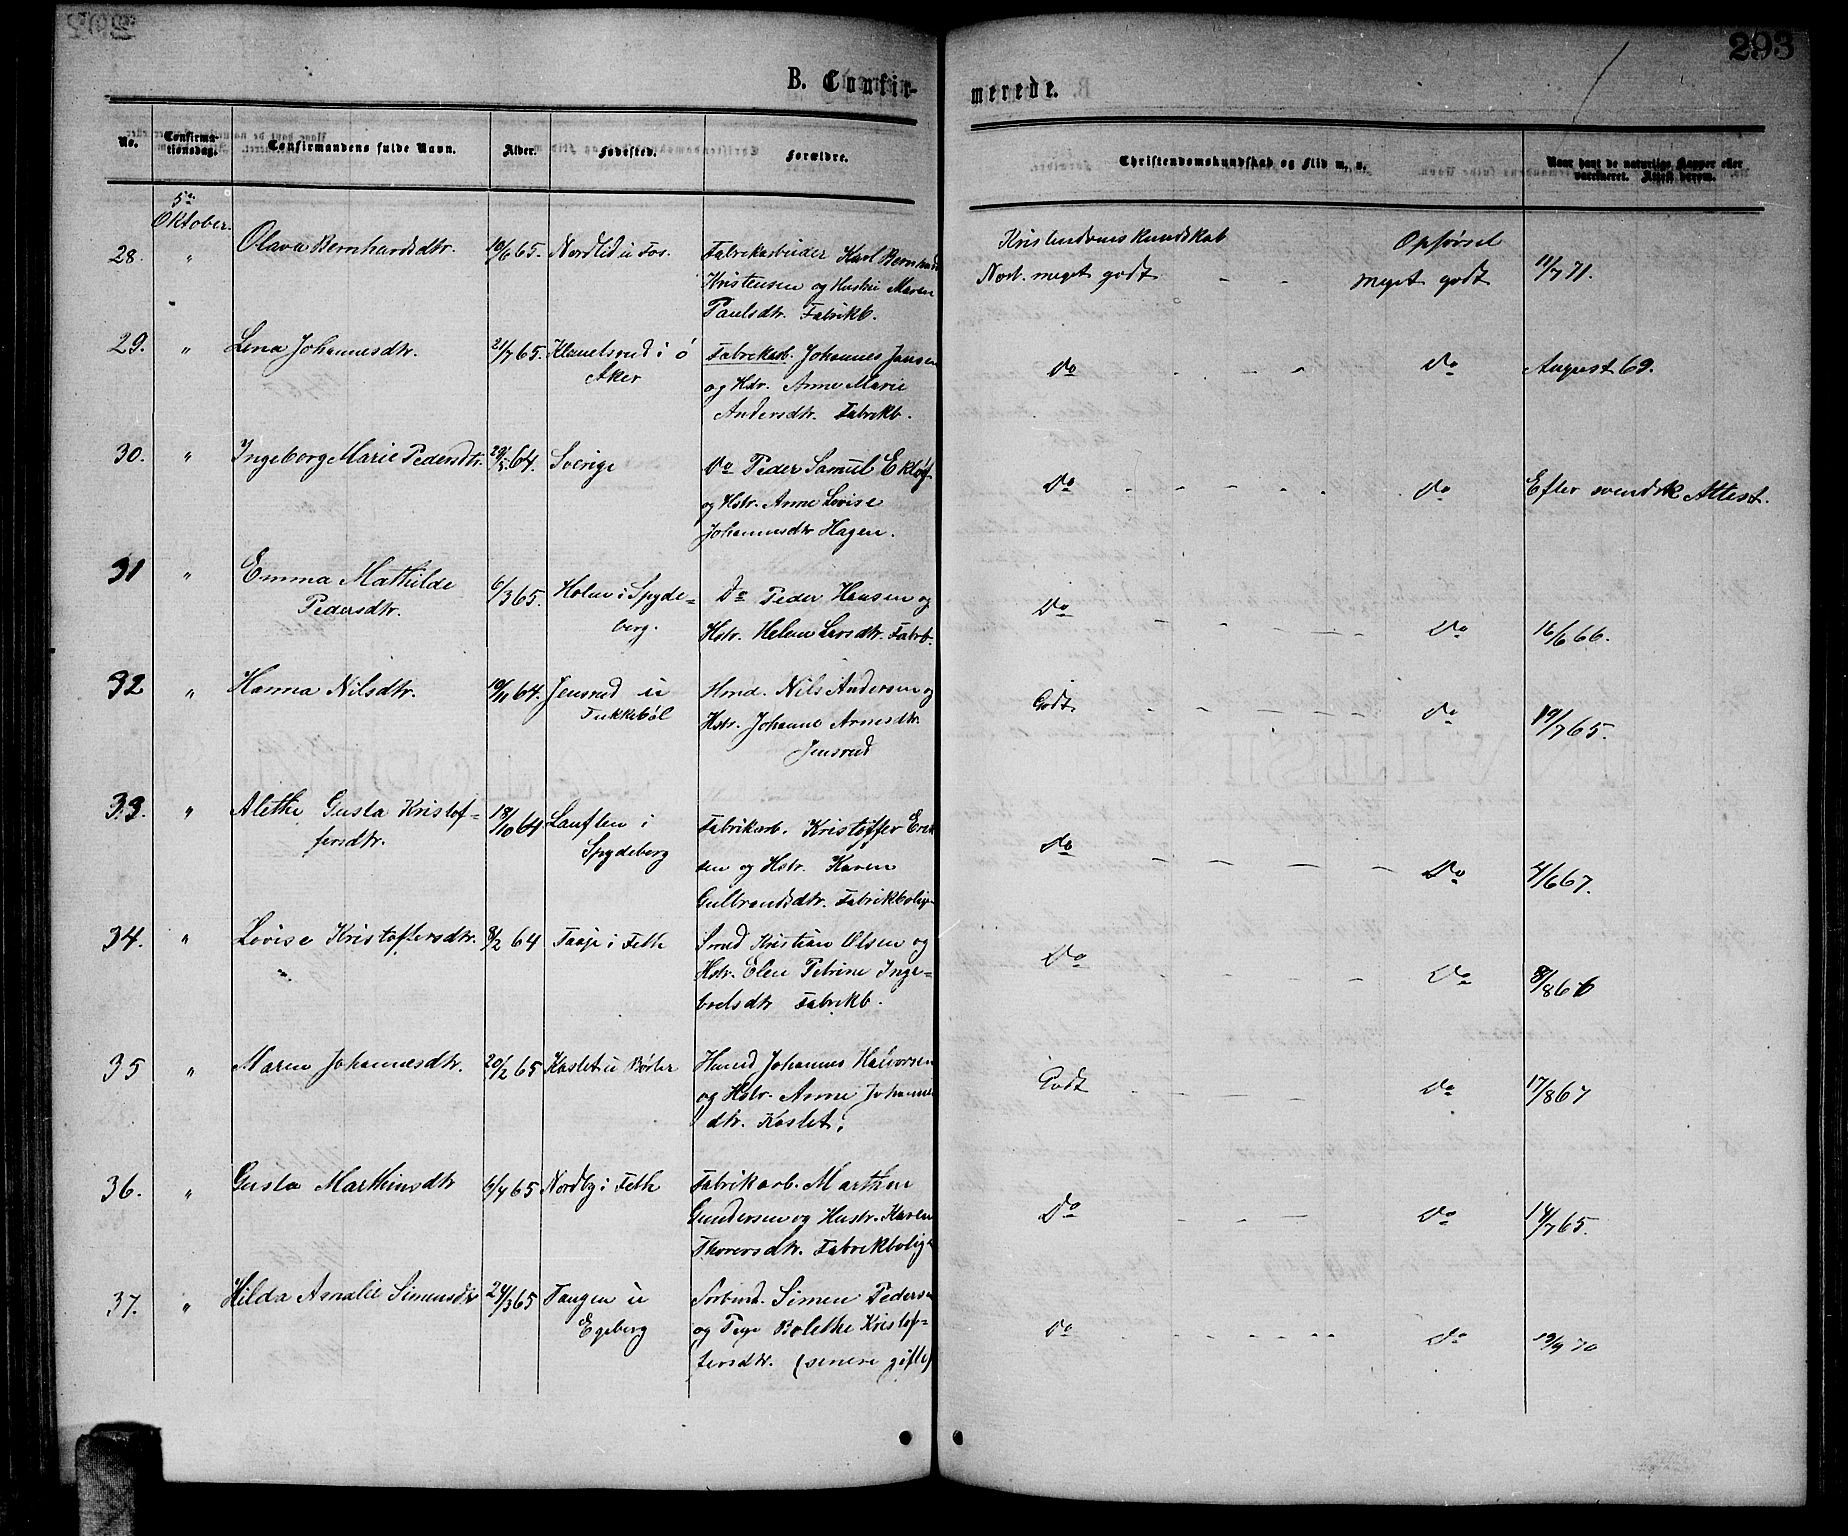 293
B. Confirmerede.
No. Confirmationsdag. Confirmandens fulde Navn. Alder. Fødested. Forældre. Christendomskundskab og Flid m. v. Naar havt de naturlige Kopper eller vaccineret. Attest derom.
5te
Oktober.
28. " Olava Bernhardsdtr. 10/6 65. Nordlid i Fos. Fabrikarbeider Karl Bernhard Kristendomskundskab Opførsel
Kristensen og Hustru Maren Nok. meget godt - - meget godt 11/7 71.
Paulsdtr. Fabrikb.
29. " Lena Johannesdtr. 21/7 65. Klemetsrud i Ø Fabrikarb. Johannes Jansen
Aker og Hstr. Anne Marie Do - - " Do August 69.
Andersdtr. Fabrikb.
30. " Ingeborg Marie Pedersdtr. 29/5 64. Sverige Do Peder Samuel Ekløf
og Hstr. Anne Lovise Do - - - - - Do Efter svensk Attest.
Johannesdtr Hagen.
31 " Emma Mathilde 6/3 65. Holen i Spyde- Do Peder Hansen og
Pedersdtr. berg. Hstr. Helene Larsdtr. Fabrb. Do - - - - - Do 16/6 66.
32 " Hanna Nilsdtr. 10/11 64. Jensrud u Hmd. Nils Andersen og Godt - - - - - Do 19/7 65.
Tukkebøl Hstr. Johanne Arnesdtr
Jensrud
33. " Alethe Gusta Kristof- 18/10 64 i Fabrikarb. Kristoffer Erik
fersdtr. Spydeberg sen og Hstr. Karen Do - - - - - - Do 4/6 67.
Gulbrandsdtr. Fabrikbolig
34. " Lovise Kristoffersdtr. 8/2 64 i Feth Smed Kristian Olsen og
Hstr. Elen Petrine Inge- Do - - - - - - Do 8/8 66
bretsdtr Fabrikb.
35 " Maren Johannesdtr. 20/2 65 Kaslet u Bøler Husmd Johannes Halvorsen
og Hstr. Anne Johannes Godt - - - - - Do 17/8 67
dtr. Kaslet.
36. " Gusta Marthinsdtr 6/4 65 Nordby i Feth Fabrikarb. Marthin
Gundersen og Hustr. Karen Do - - - - Do 14/7 65.
Thorersdtr. Fabrikbolig
37. " Hilda Amalie Simensdtr 24/3 65 Tangen u Simen Pedersen
Egeberg og Pige Bolethe Kristof- Do - - - - - Do 19/9 70
fersdtr. (senere gifte)